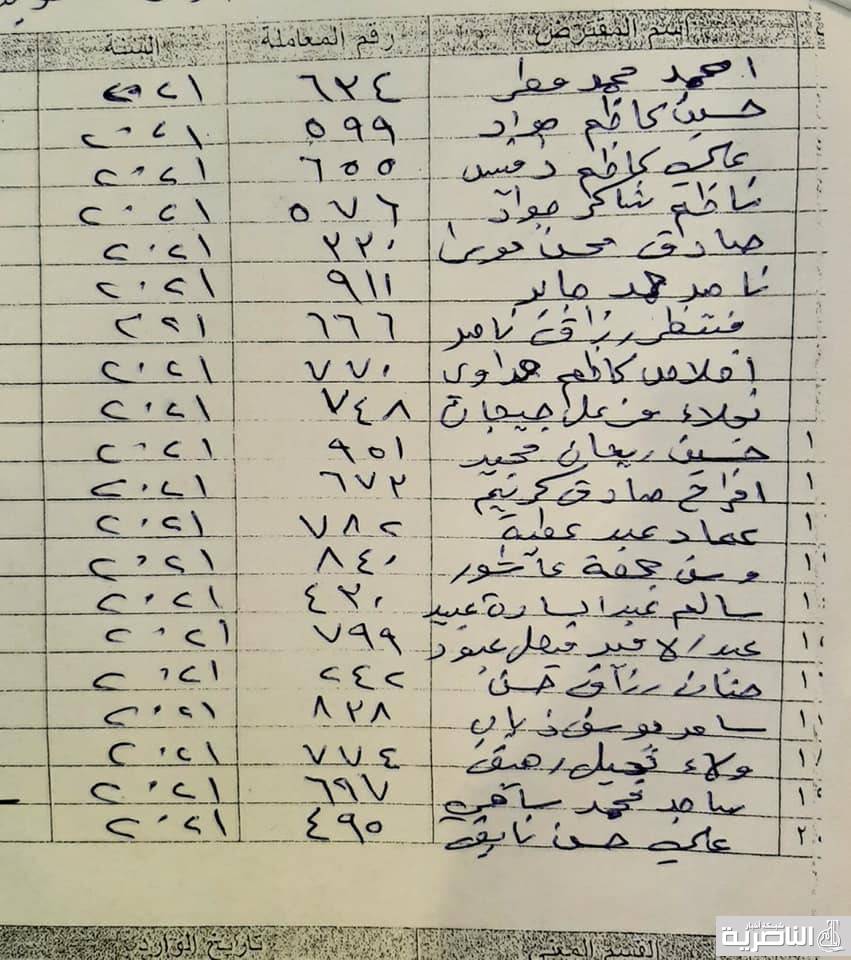 اسم المقترض رقم المعاملة السنة
احمد محمد مطر ٦٣٤ ٢٠٢١
حسين كاظم جواد ٥٩٩ ٢٠٢١
علي كاظم دفيس ٦٥٥ ٢٠٢١
ناظم شاكر جواد ٥٧٦ ٢٠٢١
صادق محسن موسى ٢٢٠ ٢٠٢١
ناصر حمد جابر ٩١١ ٢٠٢١
منتظر رزاق ناصر ٦٦٦ ٢٠٢١
اخلاص كاظم هداوي ٧٧٠ ٢٠٢١
نجلاء مزعل ٧٤٨ ٢٠٢١
١ حسين ريحان مجيد ٩٥١ ٢٠٢١
١ افراح صادق كريم ٦٧٢ ٢٠٢١
١ عماد عبد عطية ٧٨٢ ٢٠٢١
١ وسن جمعة عاشور ٨٤٠ ٢٠٢١
١ سالم عبد السادة عبيد ٤٣٠ ٢٠٢١
١ عبد الامير فيصل عبود ٧٩٩ ٢٠٢١
١ حنان رزاق حسن ٢٤٢ ٢٠٢١
١ سامر يوسف ذياب ٨٣٨ ٢٠٢١
١ ولاء جميل رهيف ٧٧٤ ٢٠٢١
١ ساجد محمد ساهي ٦٩٧ ٢٠٢١
٢٠ علي حسن نايف ٤٩٥ ٢٠٢١
القسم المعني تاريخ الوارد
شبكة أخبار الناصرية